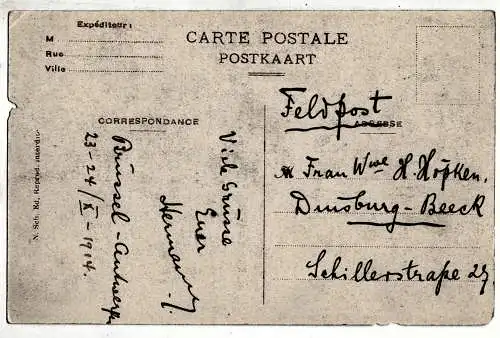 Expéditeur:
M
Rue
Ville
CARTE POSTALE
POSTKAART
CORRESPONDANCE
ADRESSE
N. Sch. Ed. Reprod. interdite
Feldpost
M Frau Wwe H. Höpken.
Duisburg-Beeck
Schillerstraße 27.
Viele Grüsse
Euer
Hermann.
Brüssel-Antwerpen
23-24/X-1914.